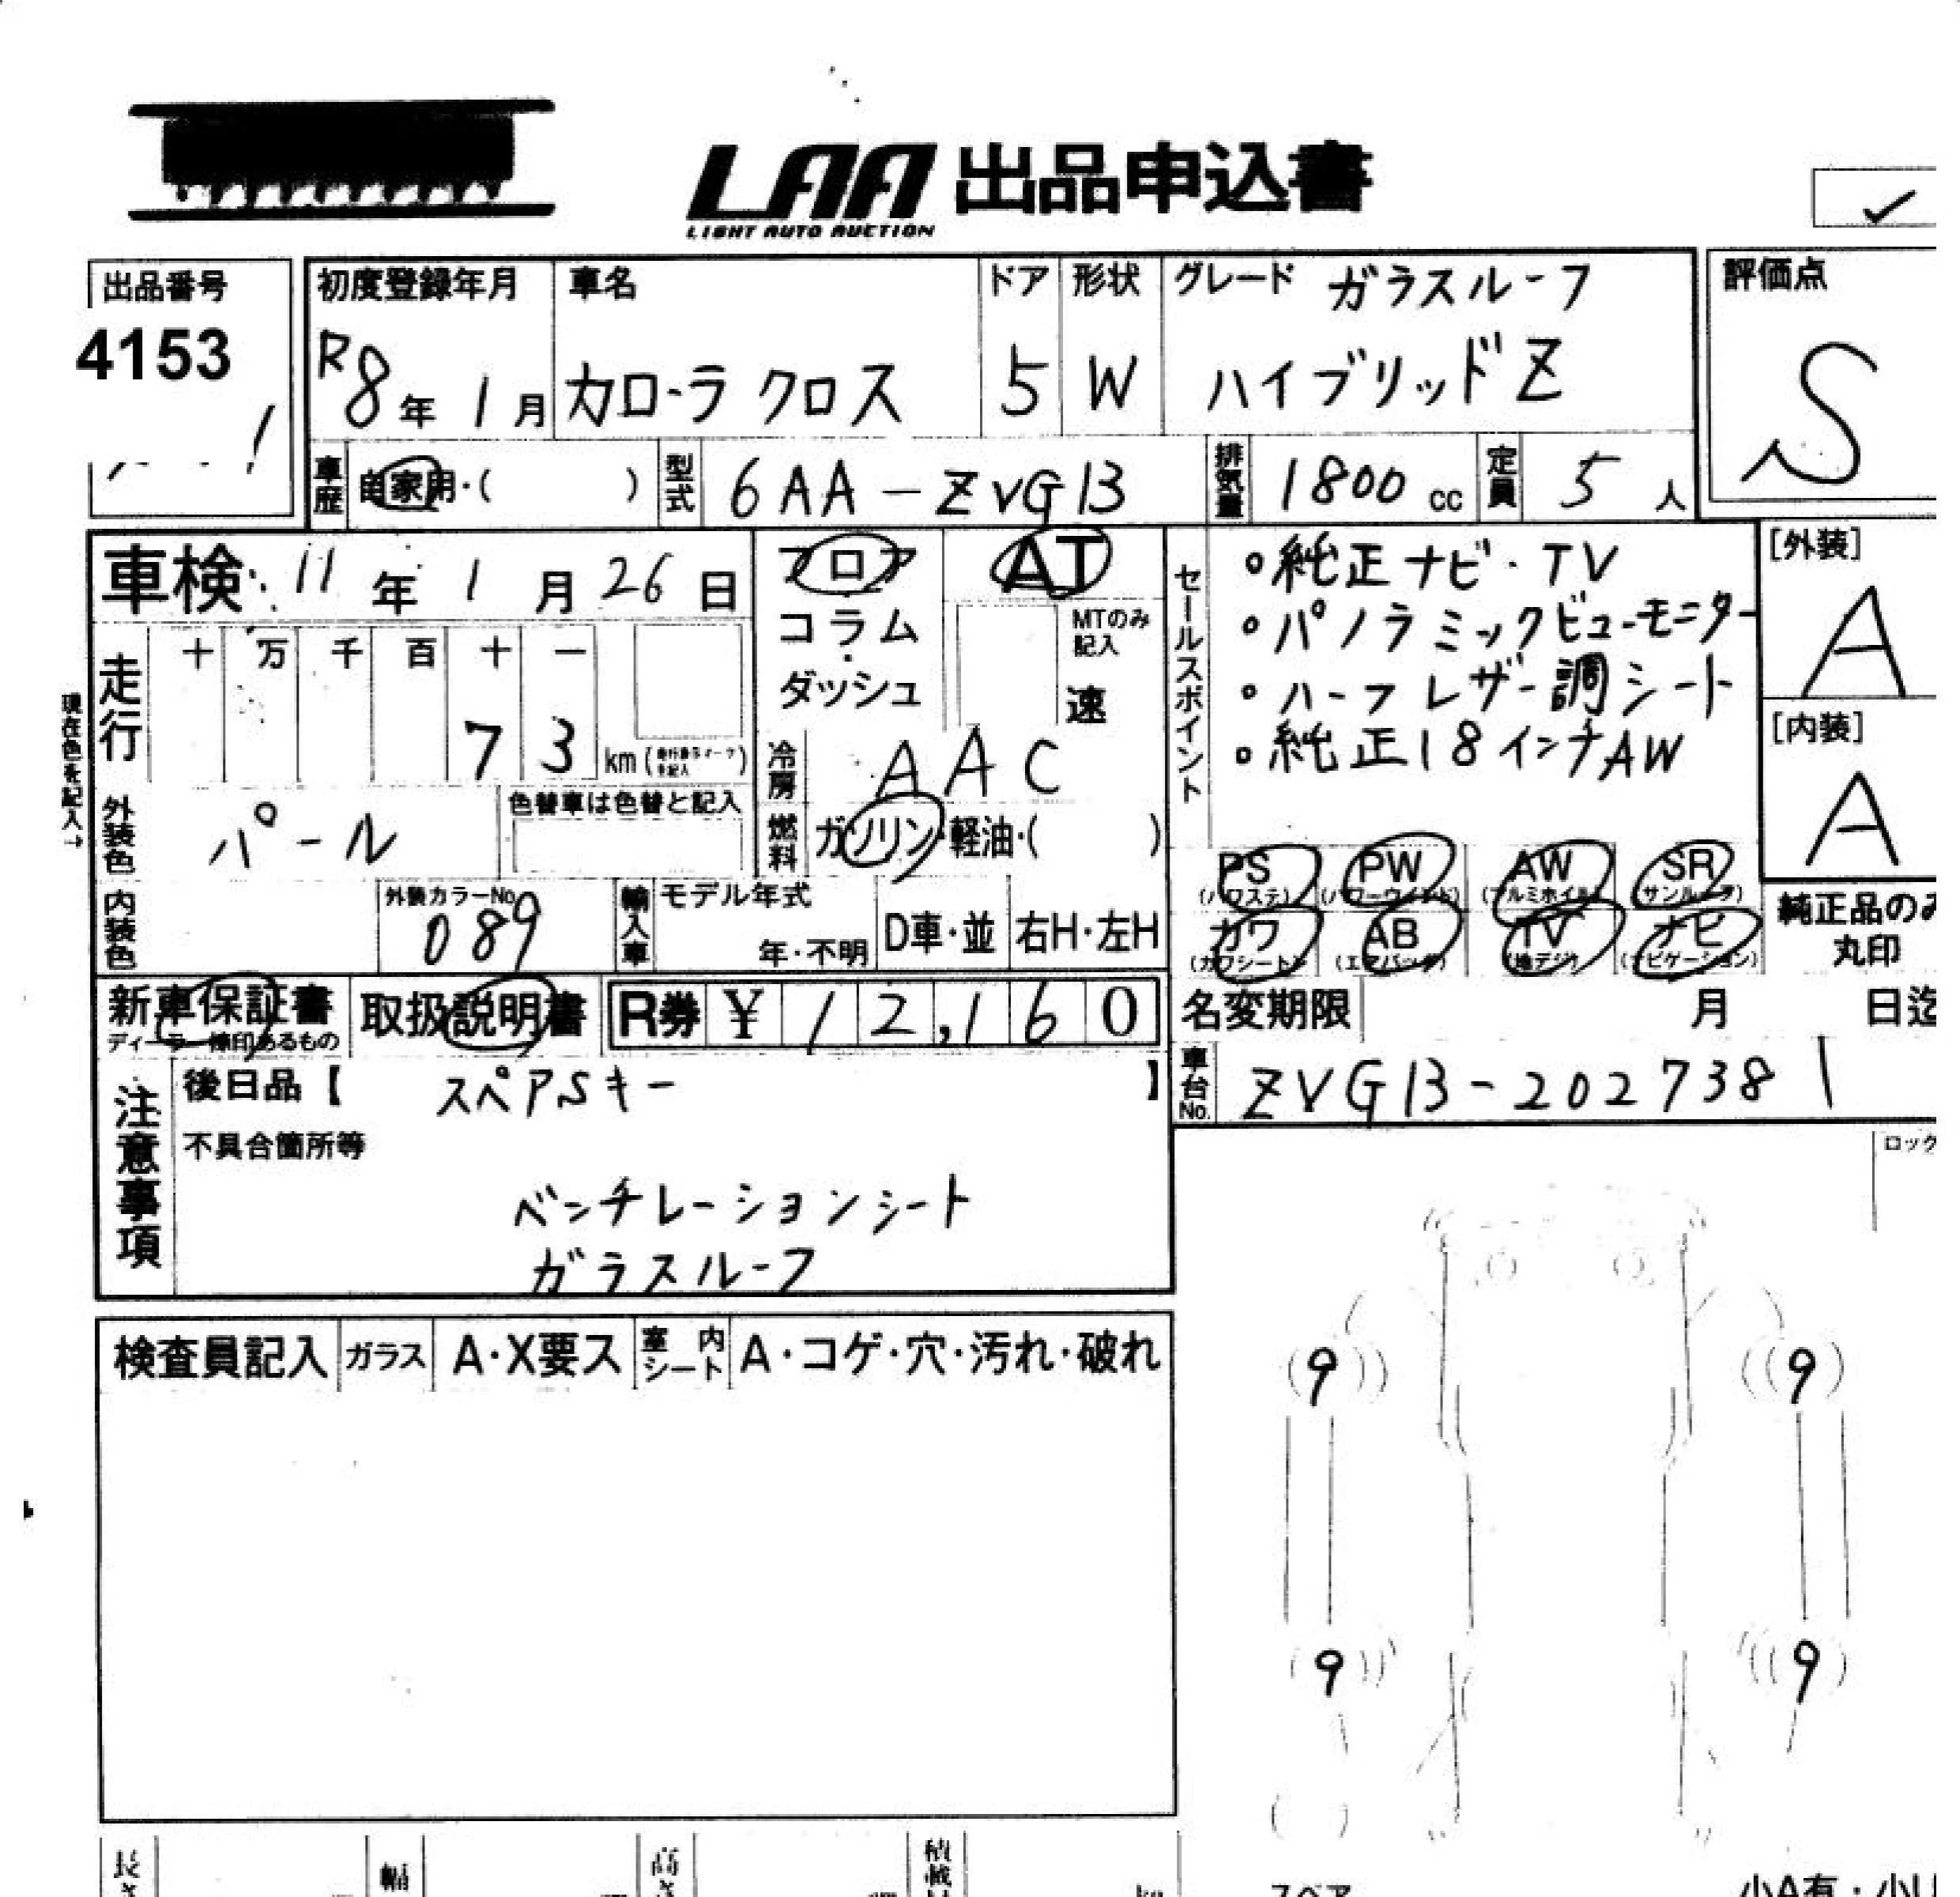 LAA 出品申込書
LIGHT AUTO AUCTION
✓
出品番号
4153
初度登録年月
R8年1月
車名
カローラ クロス
ドア
5
形状
W
グレード ガラスルーフ
ハイブリッドZ
評価点
S
車歴
自家用・( )
型式
6AA-ZVG13
排気量
1800 cc
定員
5人
車検 11年1月26日
フロア
コラム
・
ダッシュ
AT
MTのみ記入
速
セールスポイント
。純正ナビ・TV
。パノラミックビューモニター
。ハーフレザー調シート
。純正18インチAW
[外装]
A
[内装]
A
現在色を記入→
走行
十 万 千 百 十 一
7 3 km
冷房
AAC
外装色
パール
色替車は色替と記入
燃料
ガソリン・軽油・( )
PS
(パワステ)
PW
(パワーウインド)
AW
(アルミホイル)
SR
(サンルーフ)
カワ
(カワシート)
AB
(エアバッグ)
TV
(地デジ)
ナビ
(ナビゲーション)
純正品のみ
丸印
内装色
外装カラーNo.
089
輸入車
モデル年式
年・不明
D車・並
右H・左H
新車保証書
ディーラー捺印あるもの
取扱説明書
R券 ¥ 12,160
名変期限 月 日迄
車台No.
ZVG13-2027381
注意事項
後日品【 スペアSキー 】
不具合箇所等
ベンチレーションシート
ガラスルーフ
ロック
検査員記入
ガラス
A・X要ス
室内シート
A・コゲ・穴・汚れ・破れ
(9)
(9)
(9)
(9)
( )
長さ
幅
高さ
積載
kg
スペア
小A有・小U